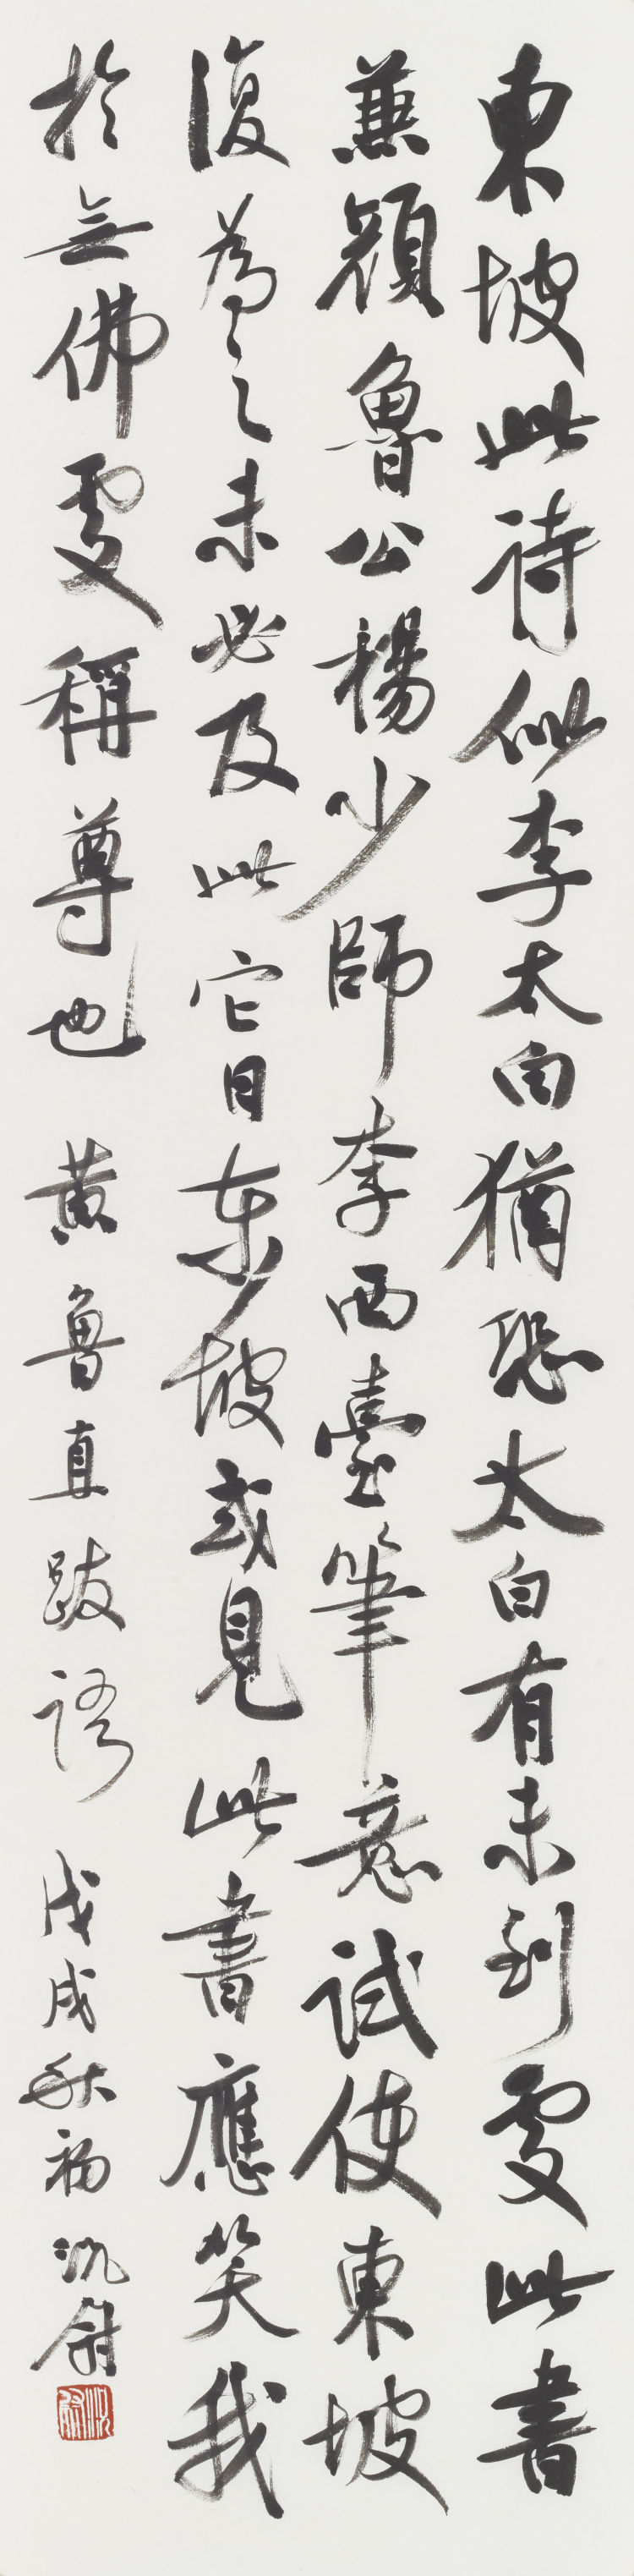 東坡此詩似李太白猶恐太白有未到處此書
兼顏魯公楊少師李西臺筆意試使東坡
復為之未必及此它日东坡或見此書應笑我
於無佛處稱尊也 黄魯直跋語 戊戌秋初